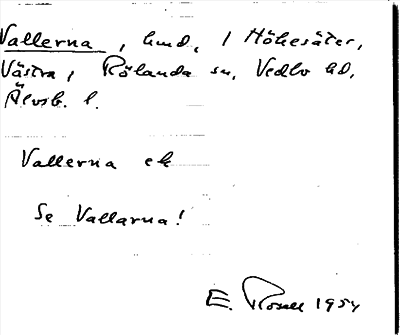 Vallerna, hmd, / Höhesäter,
Västra, Rölanda sn, Vedbo hd,
Älvsb. l.
Vallerna ek
Se Vallarna!
E. Rosell 1954